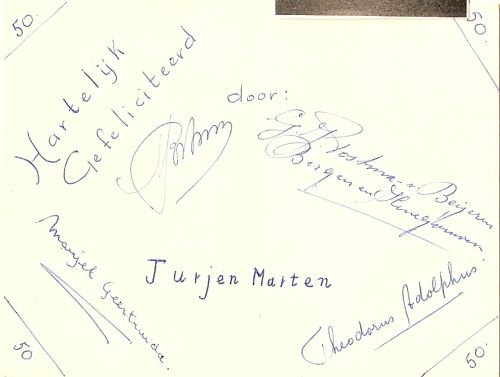 50.
50.
Hartelijk
Gefeliciteerd
door:
Postma - v Beijeren
Bergen en Henegouwen
Marijel Geertruida.
Jurjen Marten
Theodorus Adolphus.
50
50.